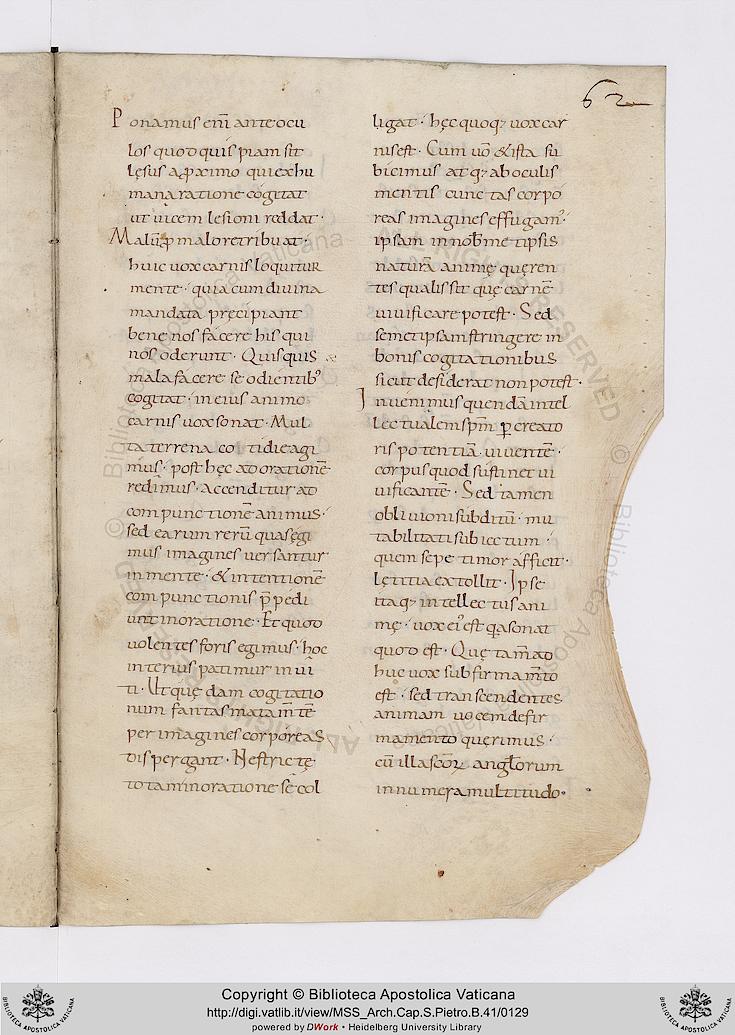 62
Ponamus eni̅ ante ocu
los quod quis piam sit
lęsus a ꝓximo qui exhu
mana ratione cogitat
ut uicem lesioni reddat·
Malu̅ ꝓ malo retribuat·
huic uox carnis loquitur
mente· quia cum diuina
mandata pręcipiant
bene nos facere his qui
nos oderunt· Quisquis
mala facere se odientib;
cogitat· in eius animo
carnis uox sonat· Mul
ta terrena cotidie agi
mus· post hęc ad oratione̅
redimus· accenditur ad
compunctione̅ animus·
sed earum reru̅ quas egi
mus imagines uersantur
in mente· & intentione̅
compunctionis p̅pedi
unt in oratione· Et quod
uolentes foris egimus· hoc
interius patimur inui
ti· Ut quędam cogitatio
num fantasmata m̅te̅
per imagines corporeas
dispergant· Ne stricte
tota in oratione se̅ col
ligat· hęc quoq; uox car
nis est· Cum uo̅ & ista su
bicimus atq; ab oculis
mentis cunctas corpo
reas imagines effugam·
ipsam in nob̅ metipsis
natura̅ animę quęren
tes qualis sit quę carne̅
uiuificare potest· Sed
semetipsam stringere in
bonis cogitationibus
sicut desiderat non potest·
Inuenimus quenda̅ intel
lectualem spm̅ ꝑ creato
ris potentia̅ uiuente̅·
corpus quod sustinet ui
uificante̅· Sed tamen
obliuioni subditu̅· mu
tabilitati subiectum·
quem sepe timor afficit·
lętitia extollit· Ipse
itaq; intellectus ani
mę· uox ei' est q̵a sonat
quod est· Quę tam̅ ad
huc uox sub firmam̅to
est· sed transcendentes
animam uocem de fir
mamento querimus·
cu̅ illa sc̅oꝝ angl̅orum
innumera multitudo·
© Biblioteca Apostolica Vaticana
ALL RIGHTS RESERVED
© Biblioteca Apostolica Vaticana
ALL RIGHTS RESERVED
BIBLIOTECA APOSTOLICA VATICANA
Copyright © Biblioteca Apostolica Vaticana
http://digi.vatlib.it/view/MSS_Arch.Cap.S.Pietro.B.41/0129
powered by DWork • Heidelberg University Library
BIBLIOTECA APOSTOLICA VATICANA